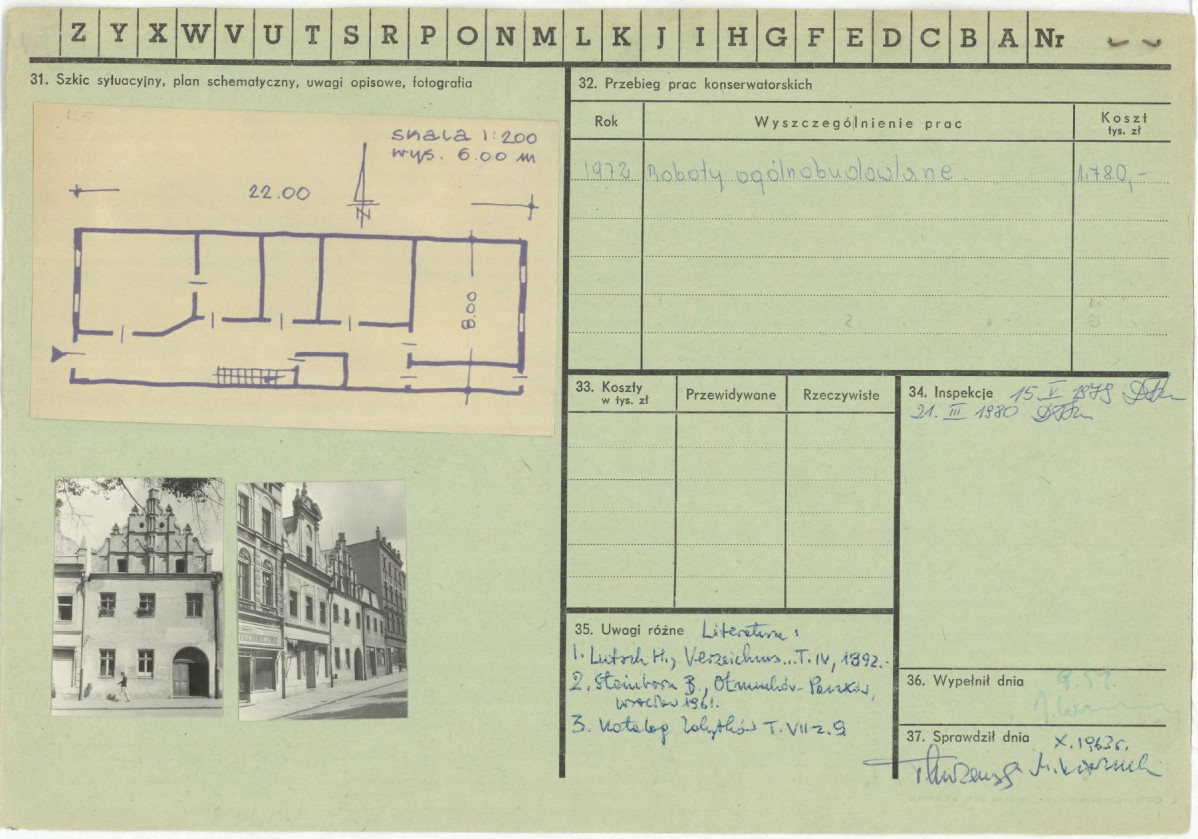 Z Y X W V U T S R P O N M L K J I H G F E D C B A Nr
31. Szkic sytuacyjny, plan schematyczny, uwagi opisowe, fotografia
skala 1:200
wys. 6.00 m
22.00
N
8.00
TECHNICZNE
32. Przebieg prac konserwatorskich
Rok
Wyszczególnienie prac
Koszt
tys. zł
1972 Roboty ogólnobudowlane. 1.780,-
33. Koszty
w tys. zł
Przewidywane
Rzeczywiste
34. Inspekcje 15. V 1979
21. III 1980
35. Uwagi różne Literatura:
1. Lutsch H., Verzeichnis...T. IV, 1892.-
2. Steinborn B., Otmuchów-Paczków,
Wrocław 1961.
3. Katalog Zabytków T. VII z. 9
36. Wypełnił dnia 9.59.
37. Sprawdził dnia X.1963r.